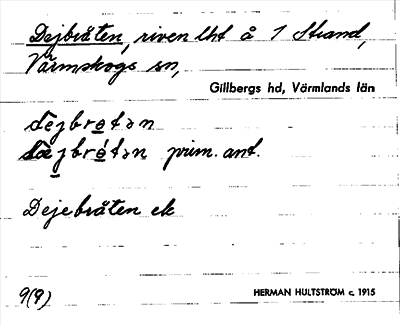 Dejbråten, riven lht å 1 Strand,
Värmskogs sn,
Gillbergs hd, Värmlands län
prim. ant.
Dejebråten ek
9(9)
HERMAN HULTSTRÖM c. 1915